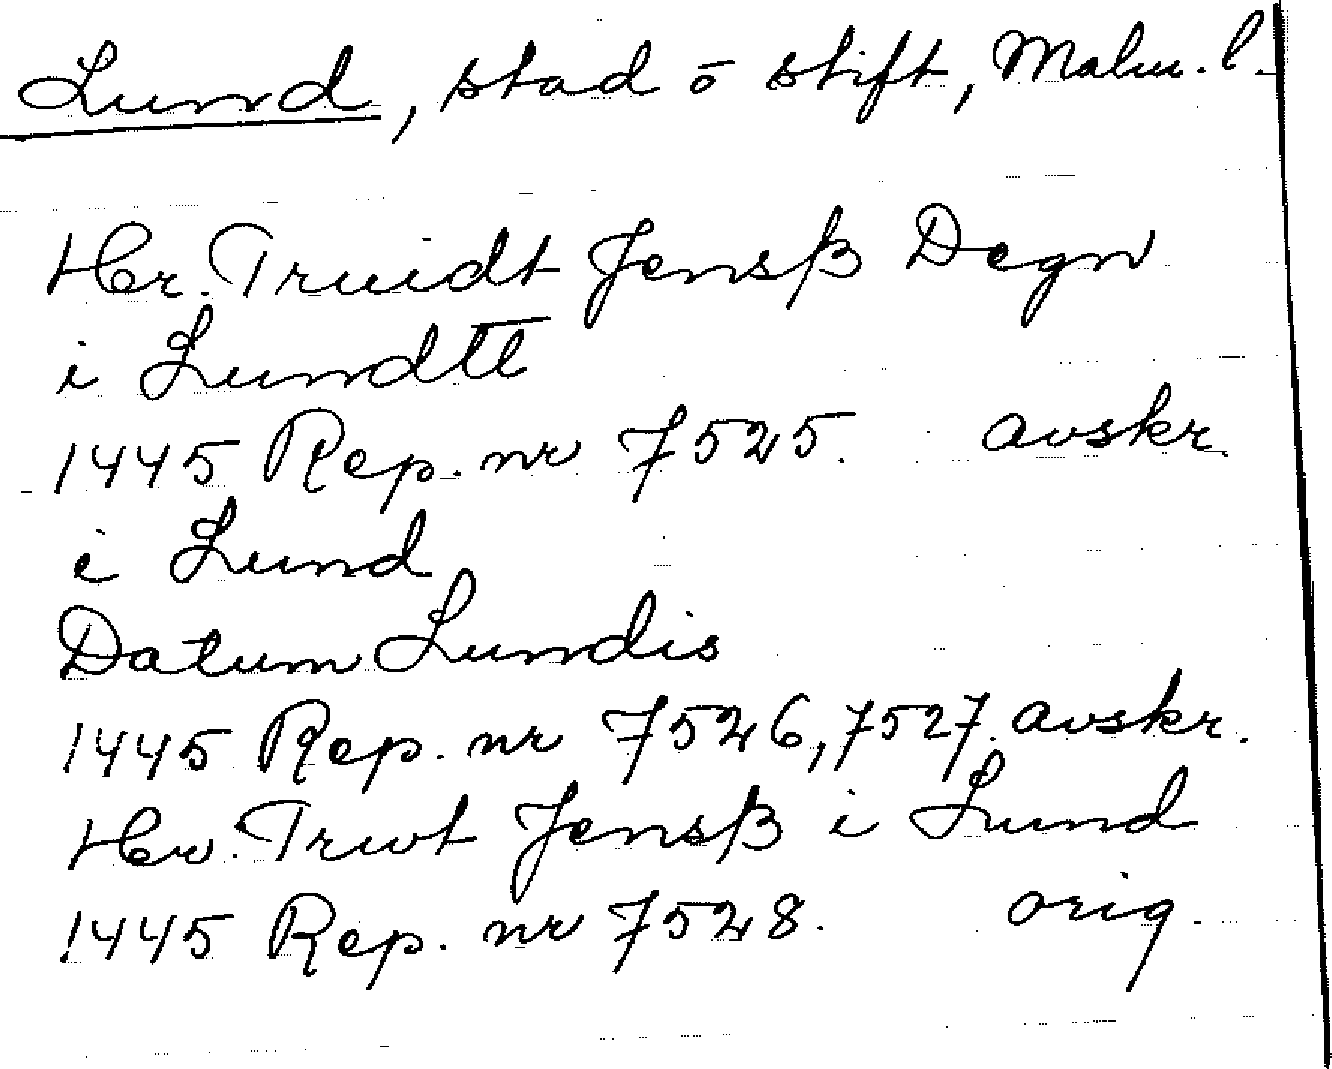 Lund, stad o stift, Malm. l.
Hr. Truidt Jensß Degn
i Lundtt
1445 Rep. nr 7525. avskr.
i Lund
Datum Lundis
1445 Rep. nr 7526, 7527. avskr.
Hr. Trwt Jensß i Lund
1445 Rep. nr 7528. orig.